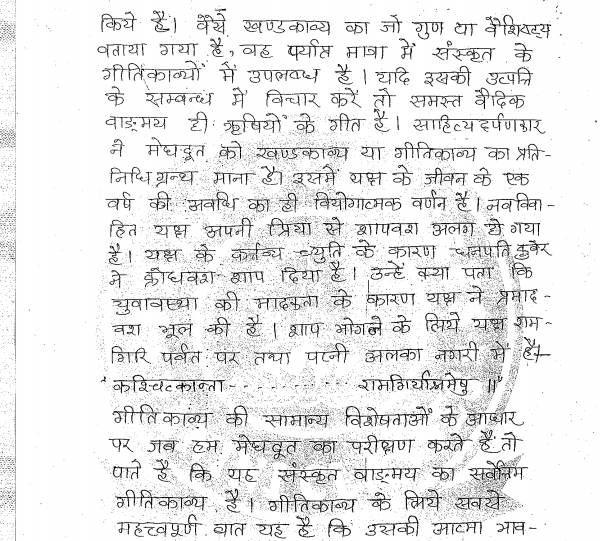 किये हैं। वैसे खण्डकाव्य का जो गुण या वैशिष्ट्य
बताया गया है, वह पर्याप्त मात्रा में संस्कृत के
गीतिकाव्यों में उपलब्ध है। यदि इसकी उत्पत्ति
के सम्बन्ध में विचार करें तो समस्त वैदिक
वाङ्मय ही ऋषियों के गीत हैं। साहित्यदर्पणकार
ने मेघदूत को खण्डकाव्य या गीतिकाव्य का प्रति-
निधि ग्रन्थ माना है। इसमें यक्ष के जीवन के एक
वर्ष की अवधि का ही वियोगात्मक वर्णन है। नवविवा-
हित यक्ष अपनी प्रिया से शापवश अलग हो गया
है। यक्ष के कर्त्तव्य च्युति के कारण धनपति कुबेर
ने क्रोधवश शाप दिया है। उन्हें क्या पता कि
युवावस्था की मादकता के कारण यक्ष ने प्रमाद-
वश भूल की है। शाप भोगने के लिये यक्ष राम-
गिरि पर्वत पर तथा पत्नी अलका नगरी में है।
"कश्चित्कान्ता - - - - - - - - - रामगिर्याश्रमेषु ॥"
गीतिकाव्य की सामान्य विशेषताओं के आधार
पर जब हम मेघदूत का परीक्षण करते हैं तो
पाते हैं कि यह संस्कृत वाङ्मय का सर्वोत्तम
गीतिकाव्य है। गीतिकाव्य के लिये सबसे
महत्त्वपूर्ण बात यह है कि उसकी आत्मा भाव-